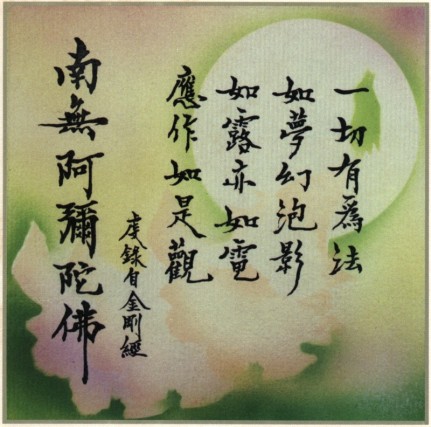 一切有為法
如夢幻泡影
如露亦如電
應作如是觀
虔錄自金剛經
南無阿彌陀佛